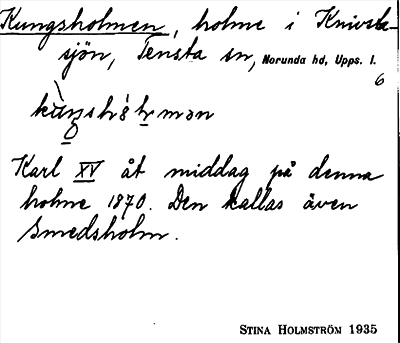 Kungsholmen, holme i Knivsta-
sjön, Tensta sn, Norunda hd, Upps. l.
6
Karl XV åt middag på denna
holme 1870. Den kallas även
Smedsholm.
STINA HOLMSTRÖM 1935